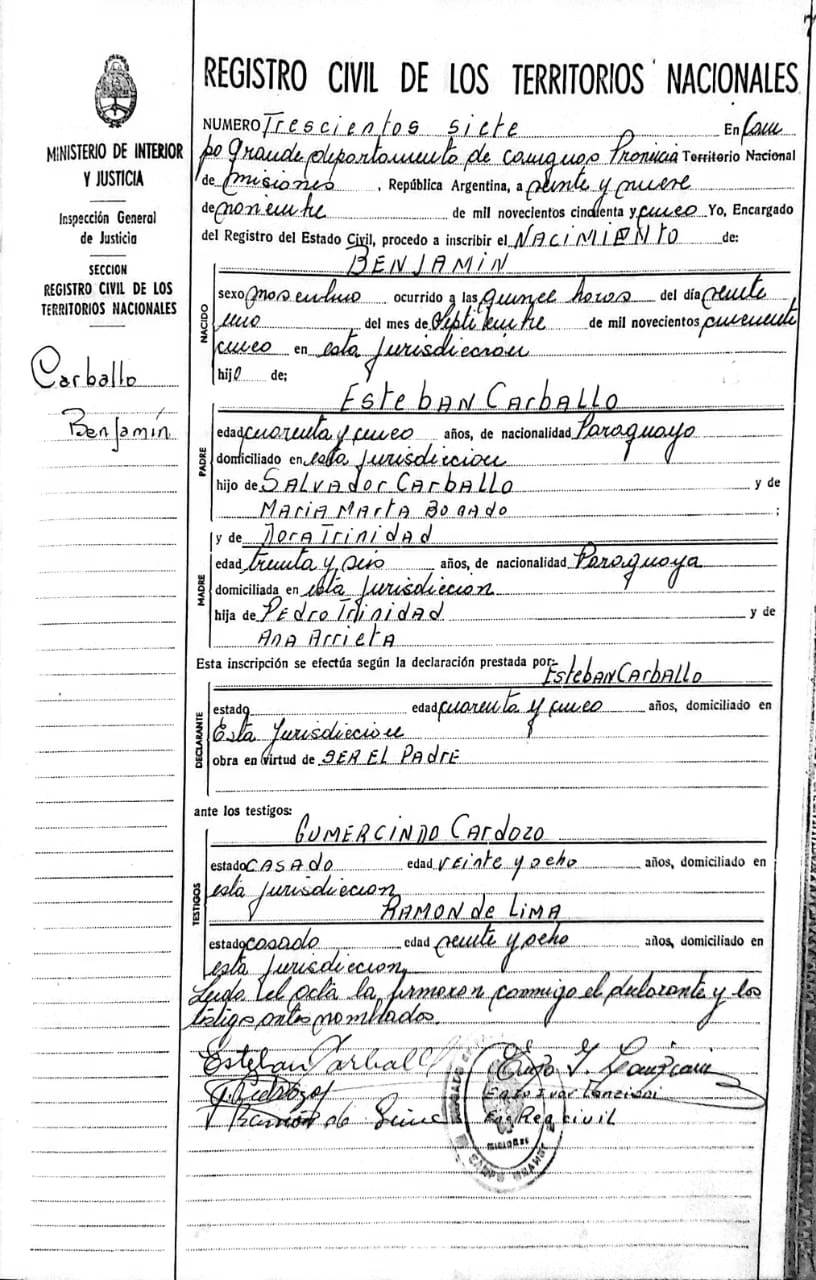 REGISTRO CIVIL DE LOS TERRITORIOS NACIONALES
MINISTERIO DE INTERIOR
Y JUSTICIA
Inspección General
de Justicia
SECCION
REGISTRO CIVIL DE LOS
TERRITORIOS NACIONALES
Carballo
Benjamín
NUMERO Trescientos siete En Cam
po Grande departamento de cainguas Provincia Territorio Nacional
de misiones , República Argentina, a veinte y nueve
de noviembre de mil novecientos cincuenta y cinco Yo, Encargado
del Registro del Estado Civil, procedo a inscribir el NACIMIENTO de:
NACIDO
BENJAMIN
sexo masculino ocurrido a las quince horas del día veinte
uno del mes de septiembre de mil novecientos cincuenta
cinco en esta Jurisdicción
hijo de:
PADRE
Esteban Carballo
edad cuarenta y cinco años, de nacionalidad Paraguayo
domiciliado en esta jurisdiccion
hijo de Salvador Carballo y de
Maria Marta Bogado ;
y de Dora Trinidad
MADRE
edad treinta y seis años, de nacionalidad Paraguaya
domiciliada en esta jurisdiccion
hija de Pedro Trinidad y de
Ana Arrieta
Esta inscripción se efectúa según la declaración prestada por: Esteban Carballo
DECLARANTE
estado edad cuarenta y cinco años, domiciliado en
Esta Jurisdiccion
obra en virtud de SER EL PADRE
ante los testigos:
TESTIGOS
Gumercindo Cardozo
estado CASADO edad veinte y ocho años, domiciliado en
esta jurisdiccion
RAMON de LIMA
estado casado edad veinte y ocho años, domiciliado en
esta jurisdiccion
Leida el acta la firmaron conmigo el declarante y los
testigos antes nombrados.
Esteban Carballo
Ramón de Lima
Enc Reg civil